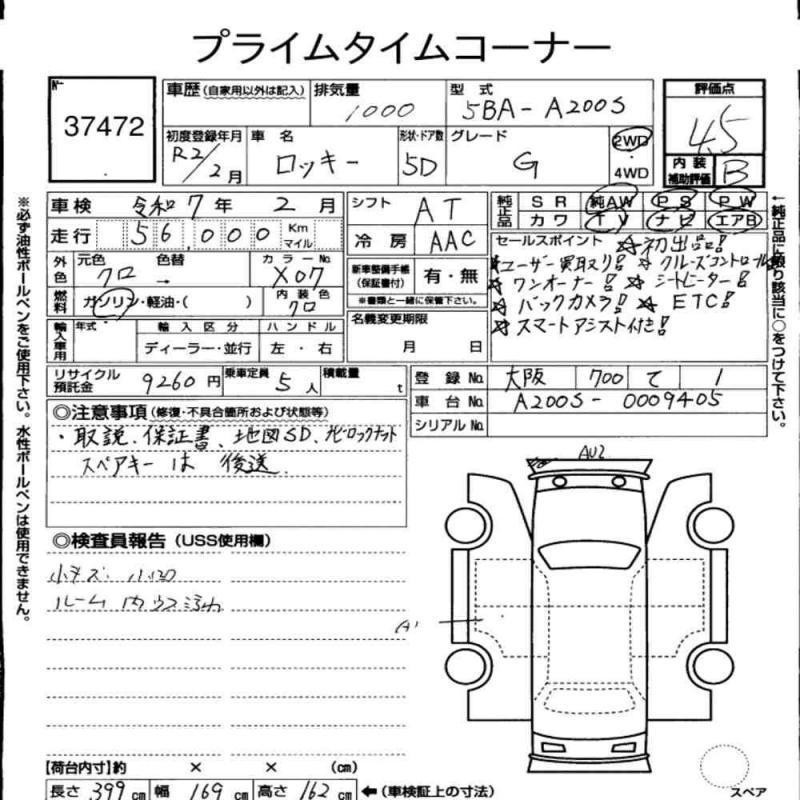 プライムタイムコーナー
No.
37472
車歴(自家用以外は記入)
排気量
1000
型式
5BA-A200S
評価点
4.5
内装補助評価
B
初度登録年月
R2/2月
車名
ロッキー
形状・ドア数
5D
グレード
G
2WD
・
4WD
車検 令和7年 2月
走行 56,000 Km マイル
シフト
AT
冷房
AAC
純正品
SR 純AW PS PW
カワ TV ナビ エアB
外色
元色
色替
カラーNo.
クロ →
X07
燃料
ガソリン・軽油・( )
内装色
クロ
新車整備手帳(保証書付)
有・無
※書類と一緒に保管下さい。
セールスポイント ☆初出品!
☆ユーザー買取り! ☆クルーズコントロール
☆ワンオーナー! ☆シートヒーター!
☆バックカメラ! ☆ETC!
☆スマートアシスト付き!
輸入車用
年式
輸入区分
ハンドル
ディーラー・並行
左・右
名義変更期限
月 日
リサイクル預託金
9260円
乗車定員
5人
積載量
t
登録No.
大阪 700 て 1
車台No.
A200S-0009405
シリアルNo.
◎注意事項(修復・不具合箇所および状態等)
・取説、保証書、地図SD、ナビロックナット
スペアキーは後送
◎検査員報告(USS使用欄)
小キズ 小凹
ルーム内ウス汚れ
AU2
A1
【荷台内寸】約 × × (cm)
長さ 399cm 幅 169cm 高さ 162cm ←(車検証上の寸法)
スペア
※必ず油性ボールペンをご使用下さい。水性ボールペンは使用できません。
←純正品に限り該当に○をつけて下さい。